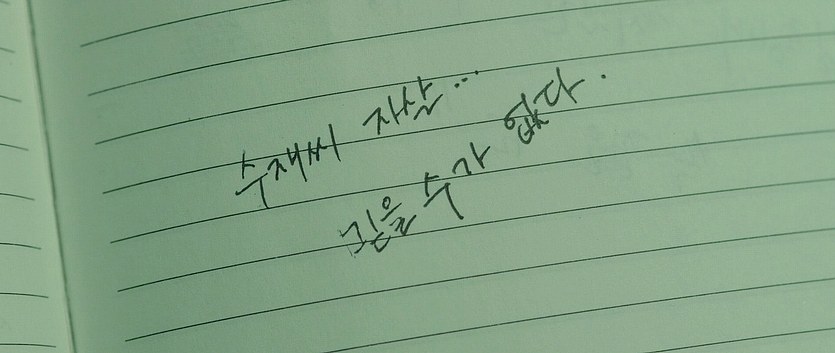 수재씨 자살...
믿을 수가 없다.